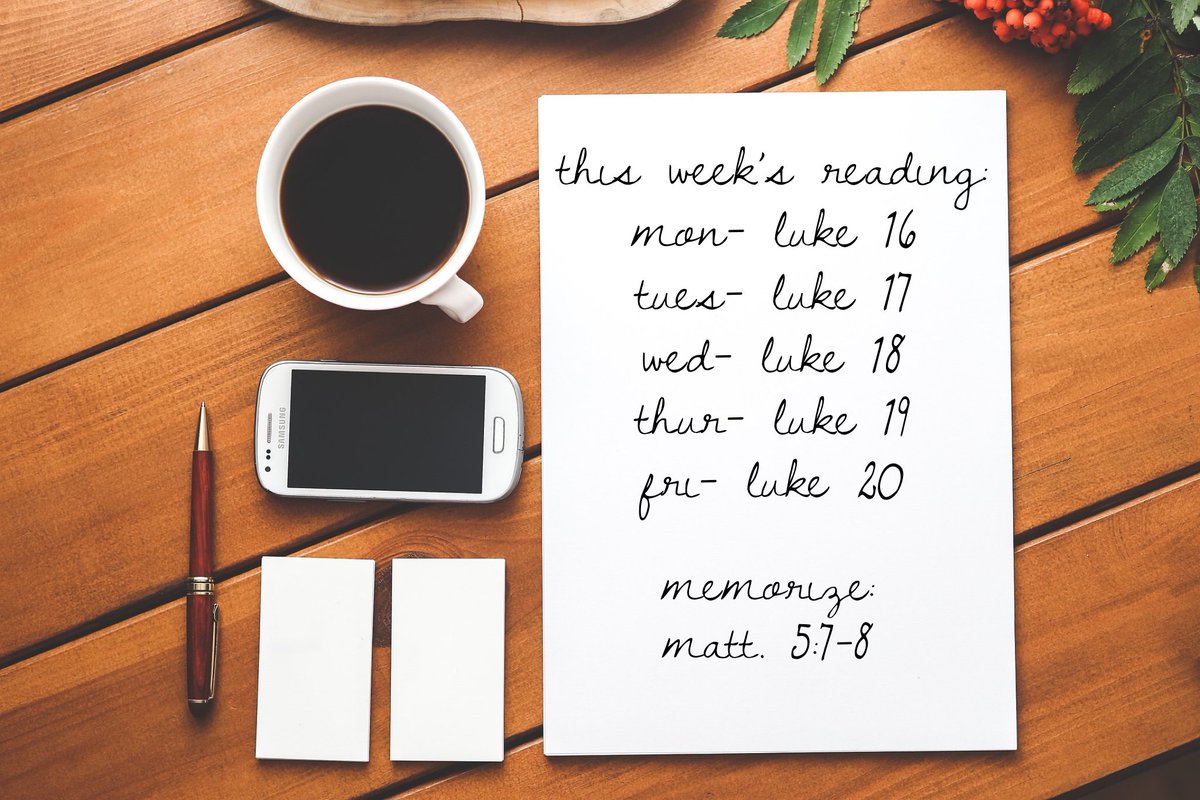 this week's reading:
mon- luke 16
tues- luke 17
wed- luke 18
thur- luke 19
fri- luke 20
memorize:
matt. 5:7-8
SAMSUNG